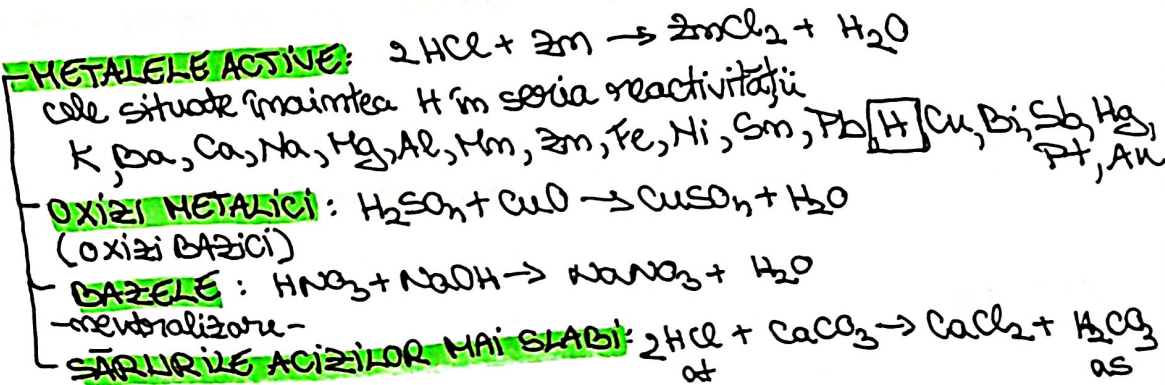 METALELE ACTIVE: 2HCl + Zn → ZnCl₂ + H₂O
cele situate înaintea H în seria reactivității
K, Ba, Ca, Na, Mg, Al, Mn, Zn, Fe, Ni, Sn, Pb, H Cu, Bi, Sb, Hg,
Pt, Au
OXIZI METALICI: H₂SO₄ + CuO → CuSO₄ + H₂O
(OXIZI BAZICI)
BAZELE: HNO₃ + NaOH → NaNO₃ + H₂O
-neutralizare-
SĂRURILE ACIZILOR MAI SLABI: 2HCl + CaCO₃ → CaCl₂ + H₂CO₃
at as